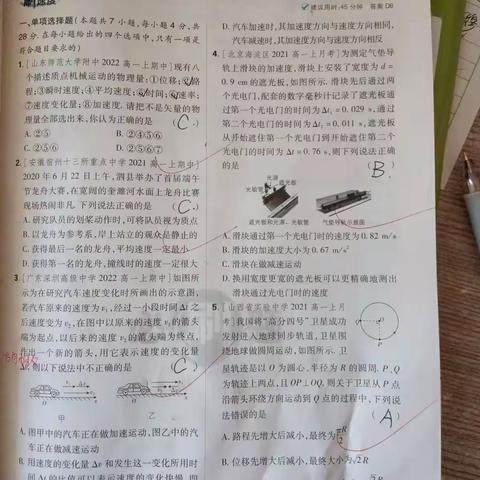 建议用时:45分钟 答案D8
一、单项选择题(本题共7小题,每小题4分,共
28分.在每小题给出的四个选项中,只有一项是
符合题目要求的)
1.[山东师范大学附中2022高一上期中]现有八
个描述质点机械运动的物理量:①位移;②路
程;③瞬时速度;④平均速度;⑤时间;⑥速率;
⑦速度变化量;⑧加速度.请把不是矢量的物
理量全部选出来,你认为正确的是 ( C. )
A.②⑤ B.②④⑤⑥
C.②⑤⑥ D.②⑤⑥⑦
2.[安徽宿州十三所重点中学2021高一上期中]
2020年6月22日上午,泗县举办了首届端午
节龙舟大赛,在宽阔的奎濉河水面上龙舟比赛
现场热闹非凡.下列说法正确的是 ( C. )
A.研究队员的划桨动作时,可将队员视为质点
B.以龙舟为参考系,岸上站立的观众是静止的
C.获得最后一名的龙舟,平均速度一定最小
D.获得第一名的龙舟,撞线时的速度一定很大
3.[广东深圳高级中学2022高一上期中]如图所
示为在研究汽车速度变化时所画出的示意图,
若汽车原来的速度为v₁,经过一小段时间Δt
后速度变为v₂,在图中以原来的速度v₁的箭头
端为起点,以后来的速度v₂的箭头端为终点,
作出一个新的箭头,用它表示速度的变化量
Δv.则以下说法中不正确的是 ( C )
甲 乙
A.图甲中的汽车正在做加速运动,图乙中的汽
车正在做减速运动
B.用速度的变化量Δv和发生这一变化所用时
间Δt的比值可以表示速度的变化快慢,即
D.汽车加速时,其加速度方向与速度方向相同,
汽车减速时,其加速度方向与速度方向相反
4.[北京海淀区2021高一上月考]为测定气垫导
轨上滑块的加速度,滑块上安装了宽度为d=
0.9 cm的遮光板,如图所示.滑块先后通过两
个光电门,配套的数字毫秒计记录了遮光板通
过第一个光电门的时间为Δt₁=0.029 s,通过
第二个光电门的时间为Δt₂=0.011 s,遮光板
从开始遮住第一个光电门到开始遮住第二个
光电门的时间为Δt=0.76 s,则下列说法正确
的是 ( B. )
光源 遮光板
光敏管
遮光板和光源、光敏管 气垫导轨示意图
A.滑块通过第一个光电门时的速度为0.82 m/s
B.滑块的加速度大小为0.67 m/s²
C.滑块在做减速运动
D.换用宽度更宽的遮光板可以更精确地测出
滑块通过光电门时的速度
5.[山西省实验中学2021高一上月
考]我国将“高分四号”卫星成功
发射进入地球同步轨道,卫星围
绕地球做圆周运动,如图所示.卫
星轨迹是以O为圆心、半径为R的圆周.P、Q
为轨迹上两点,且OP⊥OQ,则关于卫星从P点
沿箭头环绕方向运动到Q点的过程中,下列说
法错误的是 ( A )
A.路程先增大后减小,最终为π/2 R
B.位移先增大后减小,最终为√2R